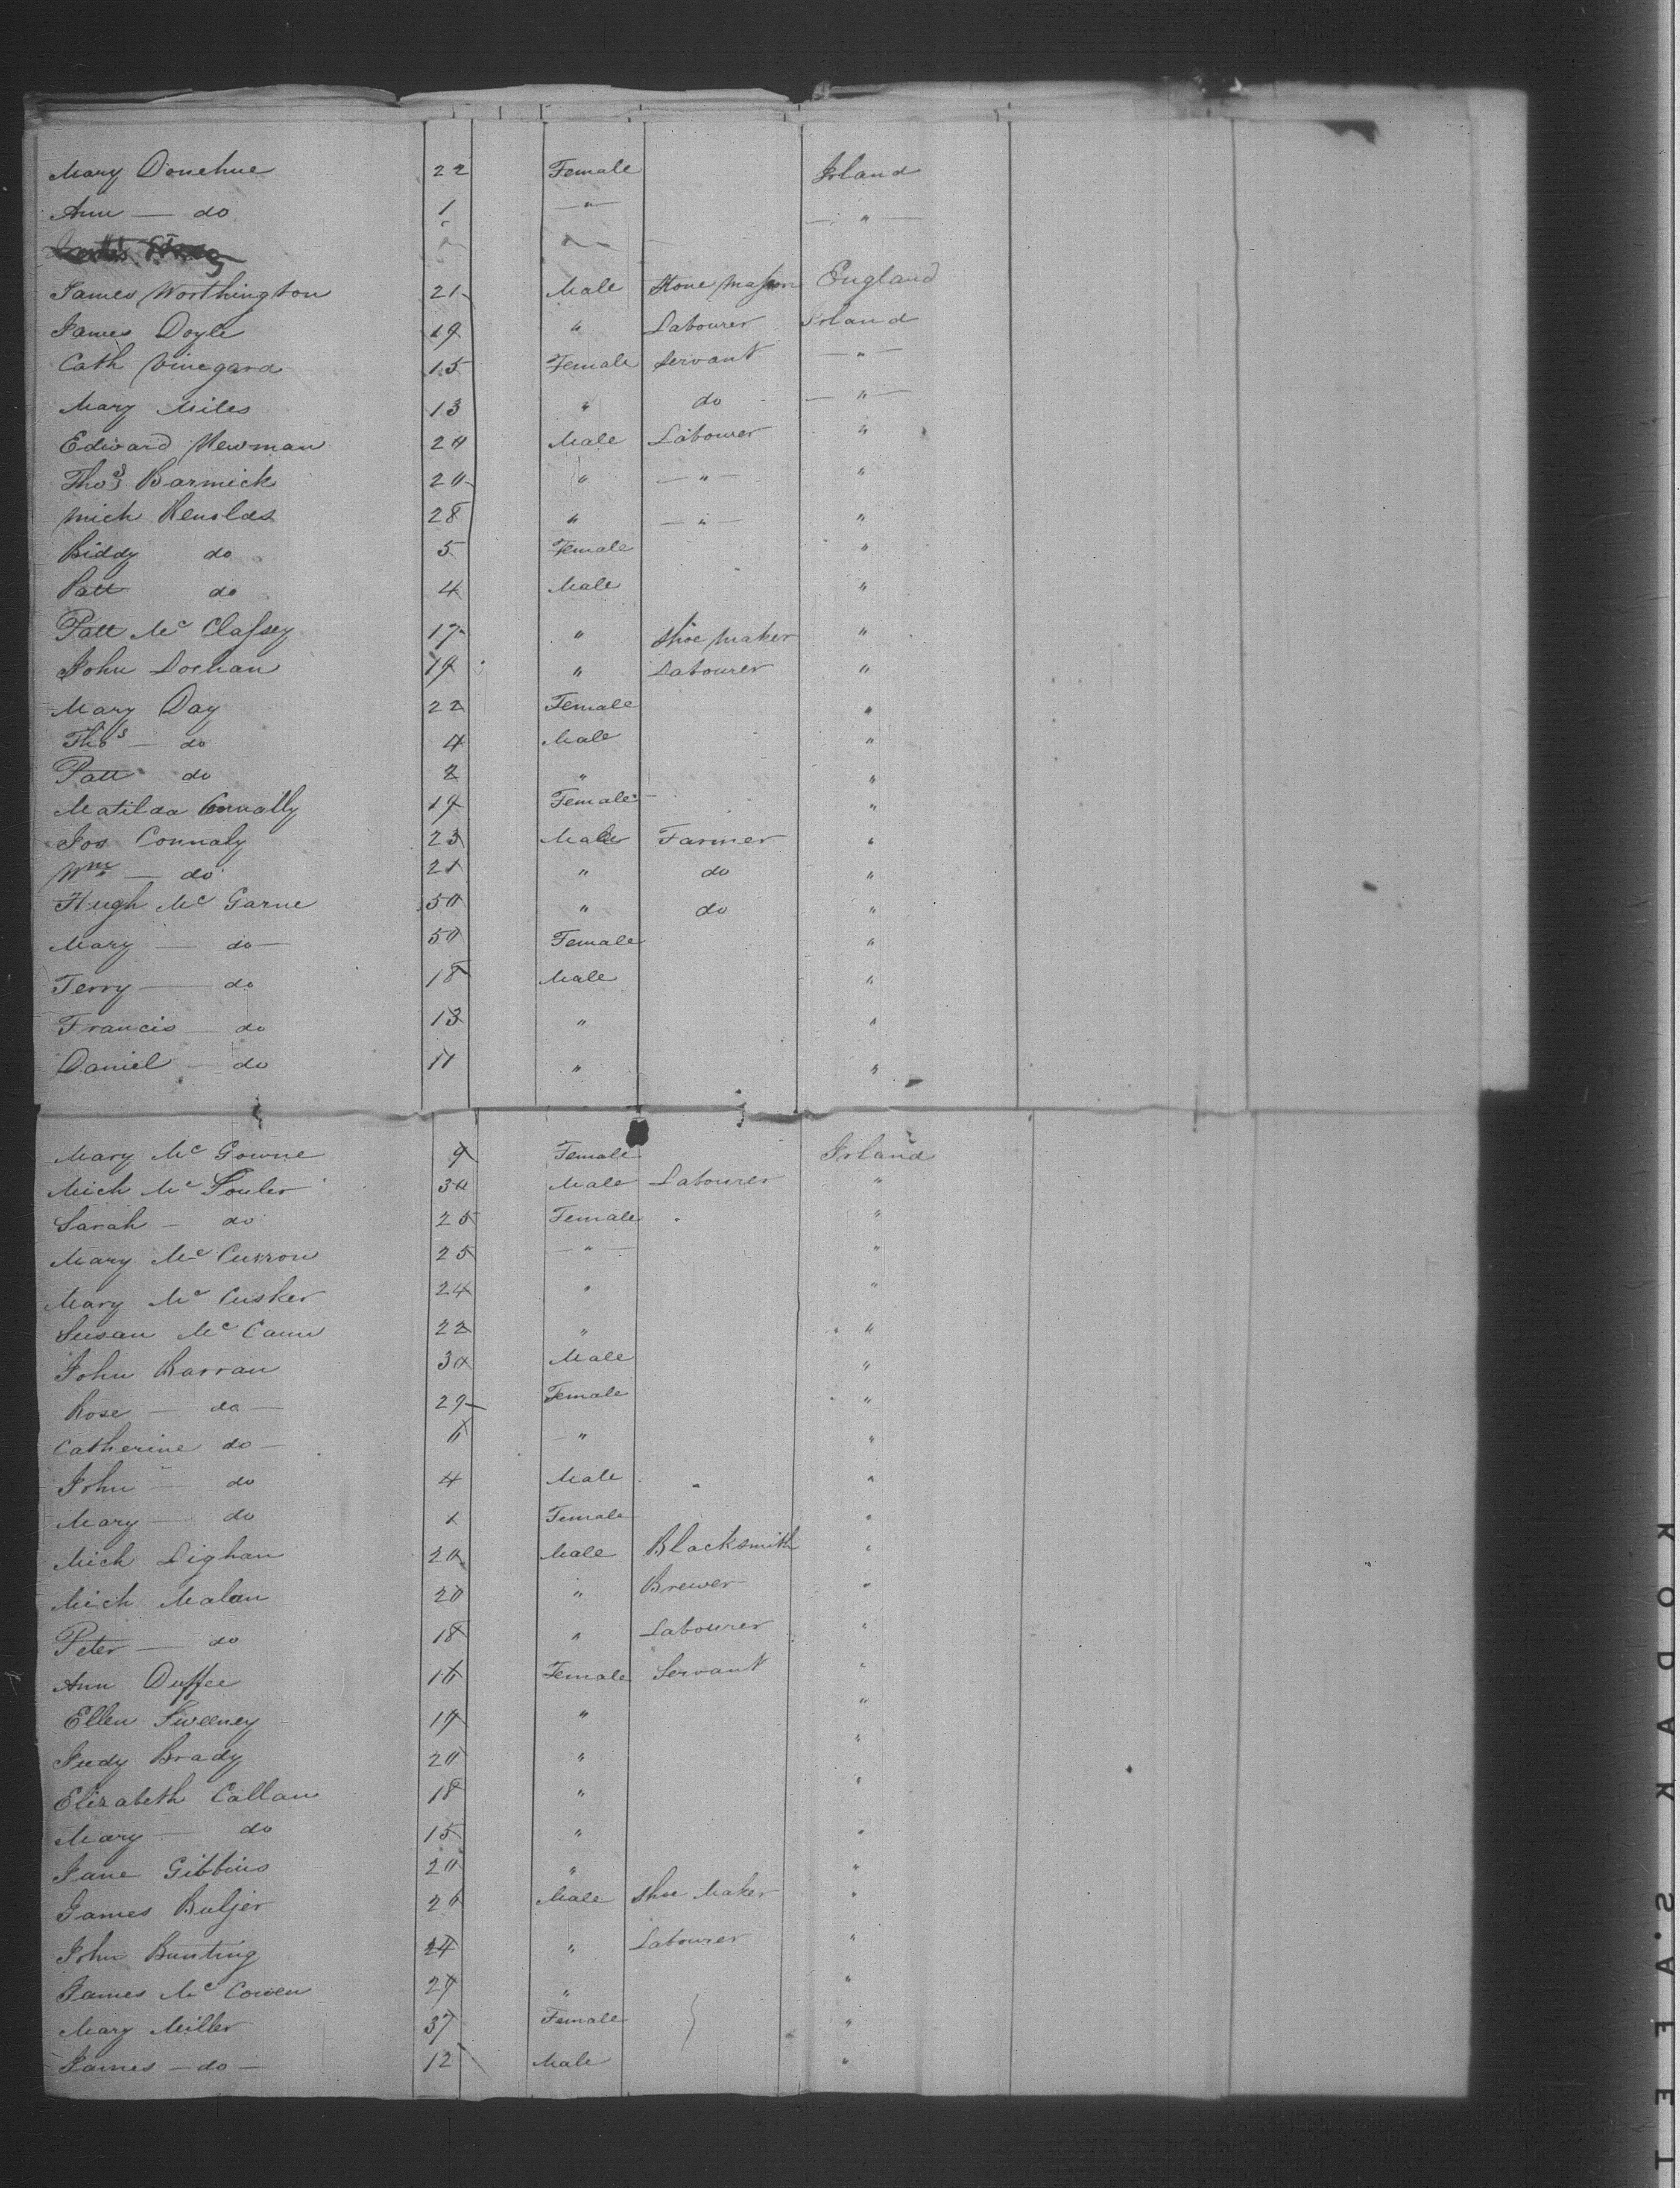 Mary Donehue 22 Female Irland
Ann — do 1 — " — — " —
James Worthington 21 Male Stone Mason England
James Doyle 19 " Labourer Irland
Cath Vinegard 15 Female Servant — " —
Mary Miles 13 " do — " —
Edward Newman 20 Male Labourer "
Thos Barmick 20 " — " — "
Mich Henolds 28 " — " — "
Biddy do 5 Female "
Patt do 4 Male "
Patt Mc Classey 17 " Shoe Maker "
John Dorhan 19 " Labourer "
Mary Day 22 Female "
Thos — do 4 Male "
Patt do 2 " "
Matilda Connally 19 Female "
Jos Connaly 23 Male Farmer "
Wm — do 21 " do "
Hugh Mc Garne 50 " do "
Mary — do — 50 Female "
Terry — do 18 Male "
Francis — do 13 " "
Daniel — do 11 " "
Mary Mc Gowne 9 Female Irland
Mich Mc 30 Male Labourer "
Sarah — do 25 Female "
Mary Mc Curron 25 — " — "
Mary Mc Cusker 24 " "
Susan Mc Cann 22 " "
John Barran 30 Male "
Rose — do — 29 Female "
Catherine do — 6 — " "
John — do 4 Male "
Mary — do 1 Female "
Mich Dighan 20 Male Blacksmith "
Mich Malan 20 " Brewer "
Peter — do 18 " Labourer "
Ann Duffee 16 Female Servant "
Ellen Sweeney 19 " "
Judy Brady 20 " "
Elizabeth Callan 18 " "
Mary — do 15 " "
Jane Gibbins 20 " "
James Buljer 20 Male Shoe Maker "
John Bunting 24 " Labourer "
James Mc Cowen 29 " "
Mary Miller 37 Female "
James — do — 12 Male "
KODAK S.AFETY